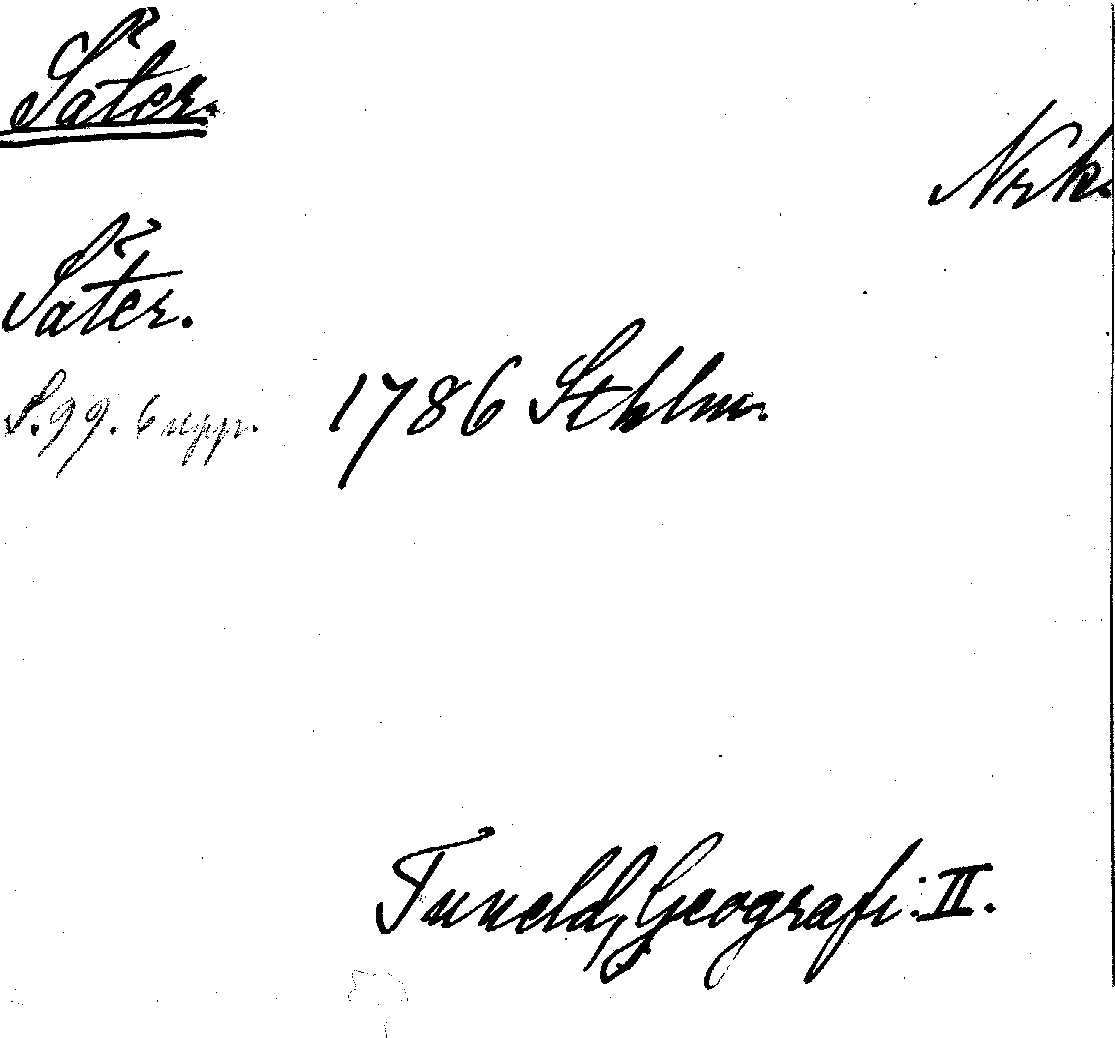 Säter.
Nrk.
Säter.
S. 99. 6 upp. 1786 Sthlm.
Tuneld, Geografi. II.